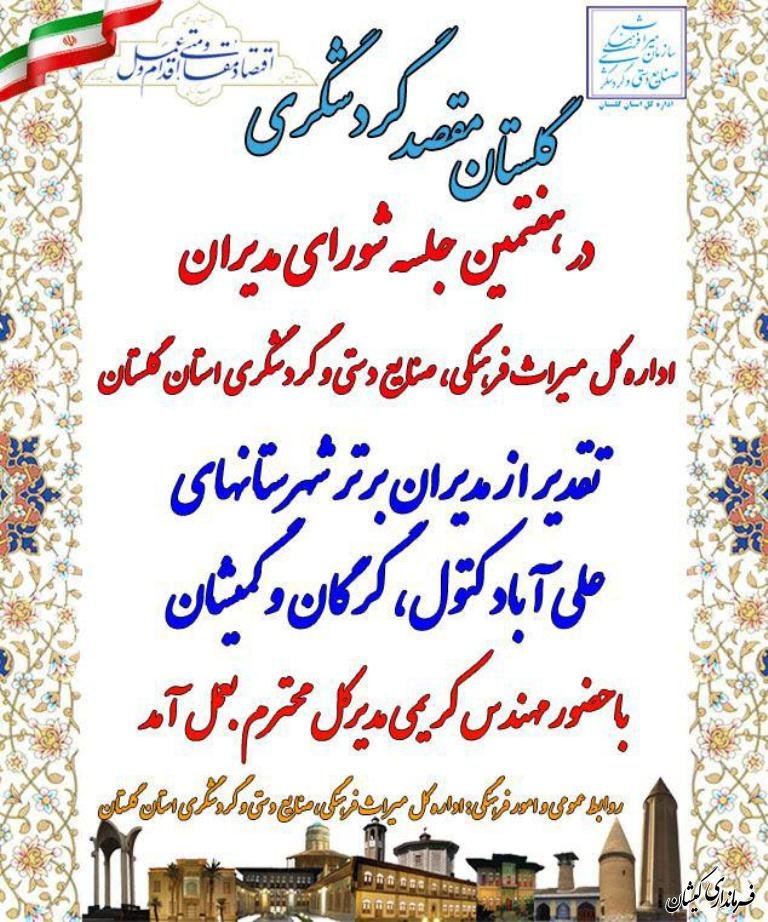 اقتصاد مقاومتی، اقدام و عمل
سازمان میراث فرهنگی
صنایع دستی و گردشگری
اداره کل استان گلستان
گلستان مقصد گردشگری
در هفتمین جلسه شورای مدیران
اداره کل میراث فرهنگی، صنایع دستی و گردشگری استان گلستان
تقدیر از مدیران برتر شهرستانهای
علی آباد کتول، گرگان و گمیشان
با حضور مهندس کریمی مدیرکل محترم بعمل آمد
روابط عمومی و امور فرهنگی: اداره کل میراث فرهنگی، صنایع دستی و گردشگری استان گلستان
فرمانداری گمیشان